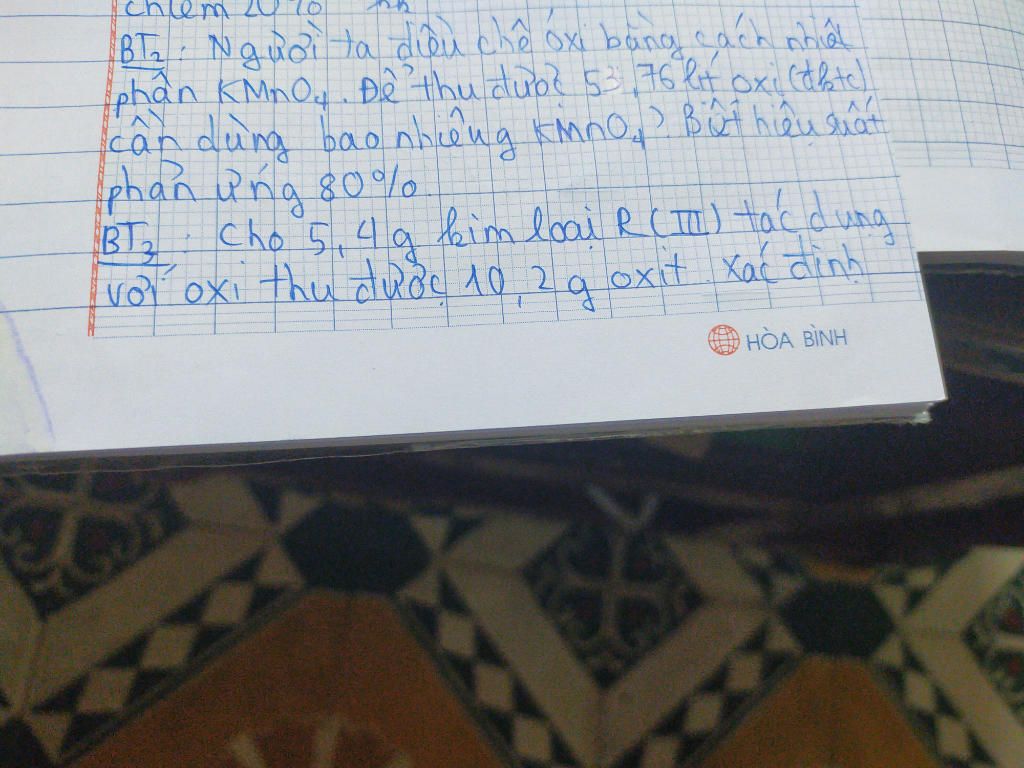 chiếm 20%
BT2: Người ta điều chế oxi bằng cách nhiệt
phân KMnO4. Để thu được 53,76 lít oxi (đktc)
cần dùng bao nhiêu g KMnO4? Biết hiệu suất
phản ứng 80%
BT3: Cho 5,4g kim loại R(III) tác dụng
với oxi thu được 10,2 g oxit. Xác định
HÒA BÌNH